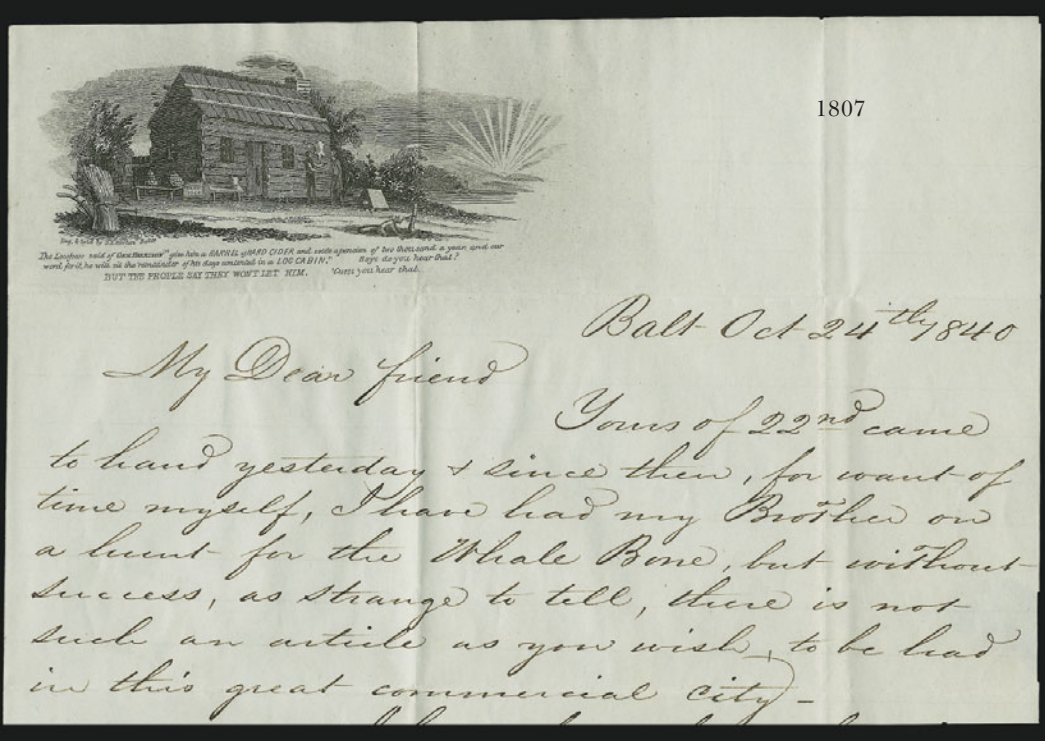 1807
Eng. & sold by
The Locofocos said of GEN. HARRISON "give him a BARREL of HARD CIDER and settle a pension of two thousand a year, and our
word for it, he will sit the remainder of his days contented in a LOG CABIN." Boys do you hear that?
BUT THE PEOPLE SAY THEY WON'T LET HIM. Guess you hear that.
Balt Oct 24th, 1840
My Dear friend
Yours of 22nd came
to hand yesterday & since then, for want of
time myself, I have had my Brother on
a hunt for the Whale Bone, but without
success, as strange to tell, there is not
such an article as you wish, to be had
in this great commercial city -